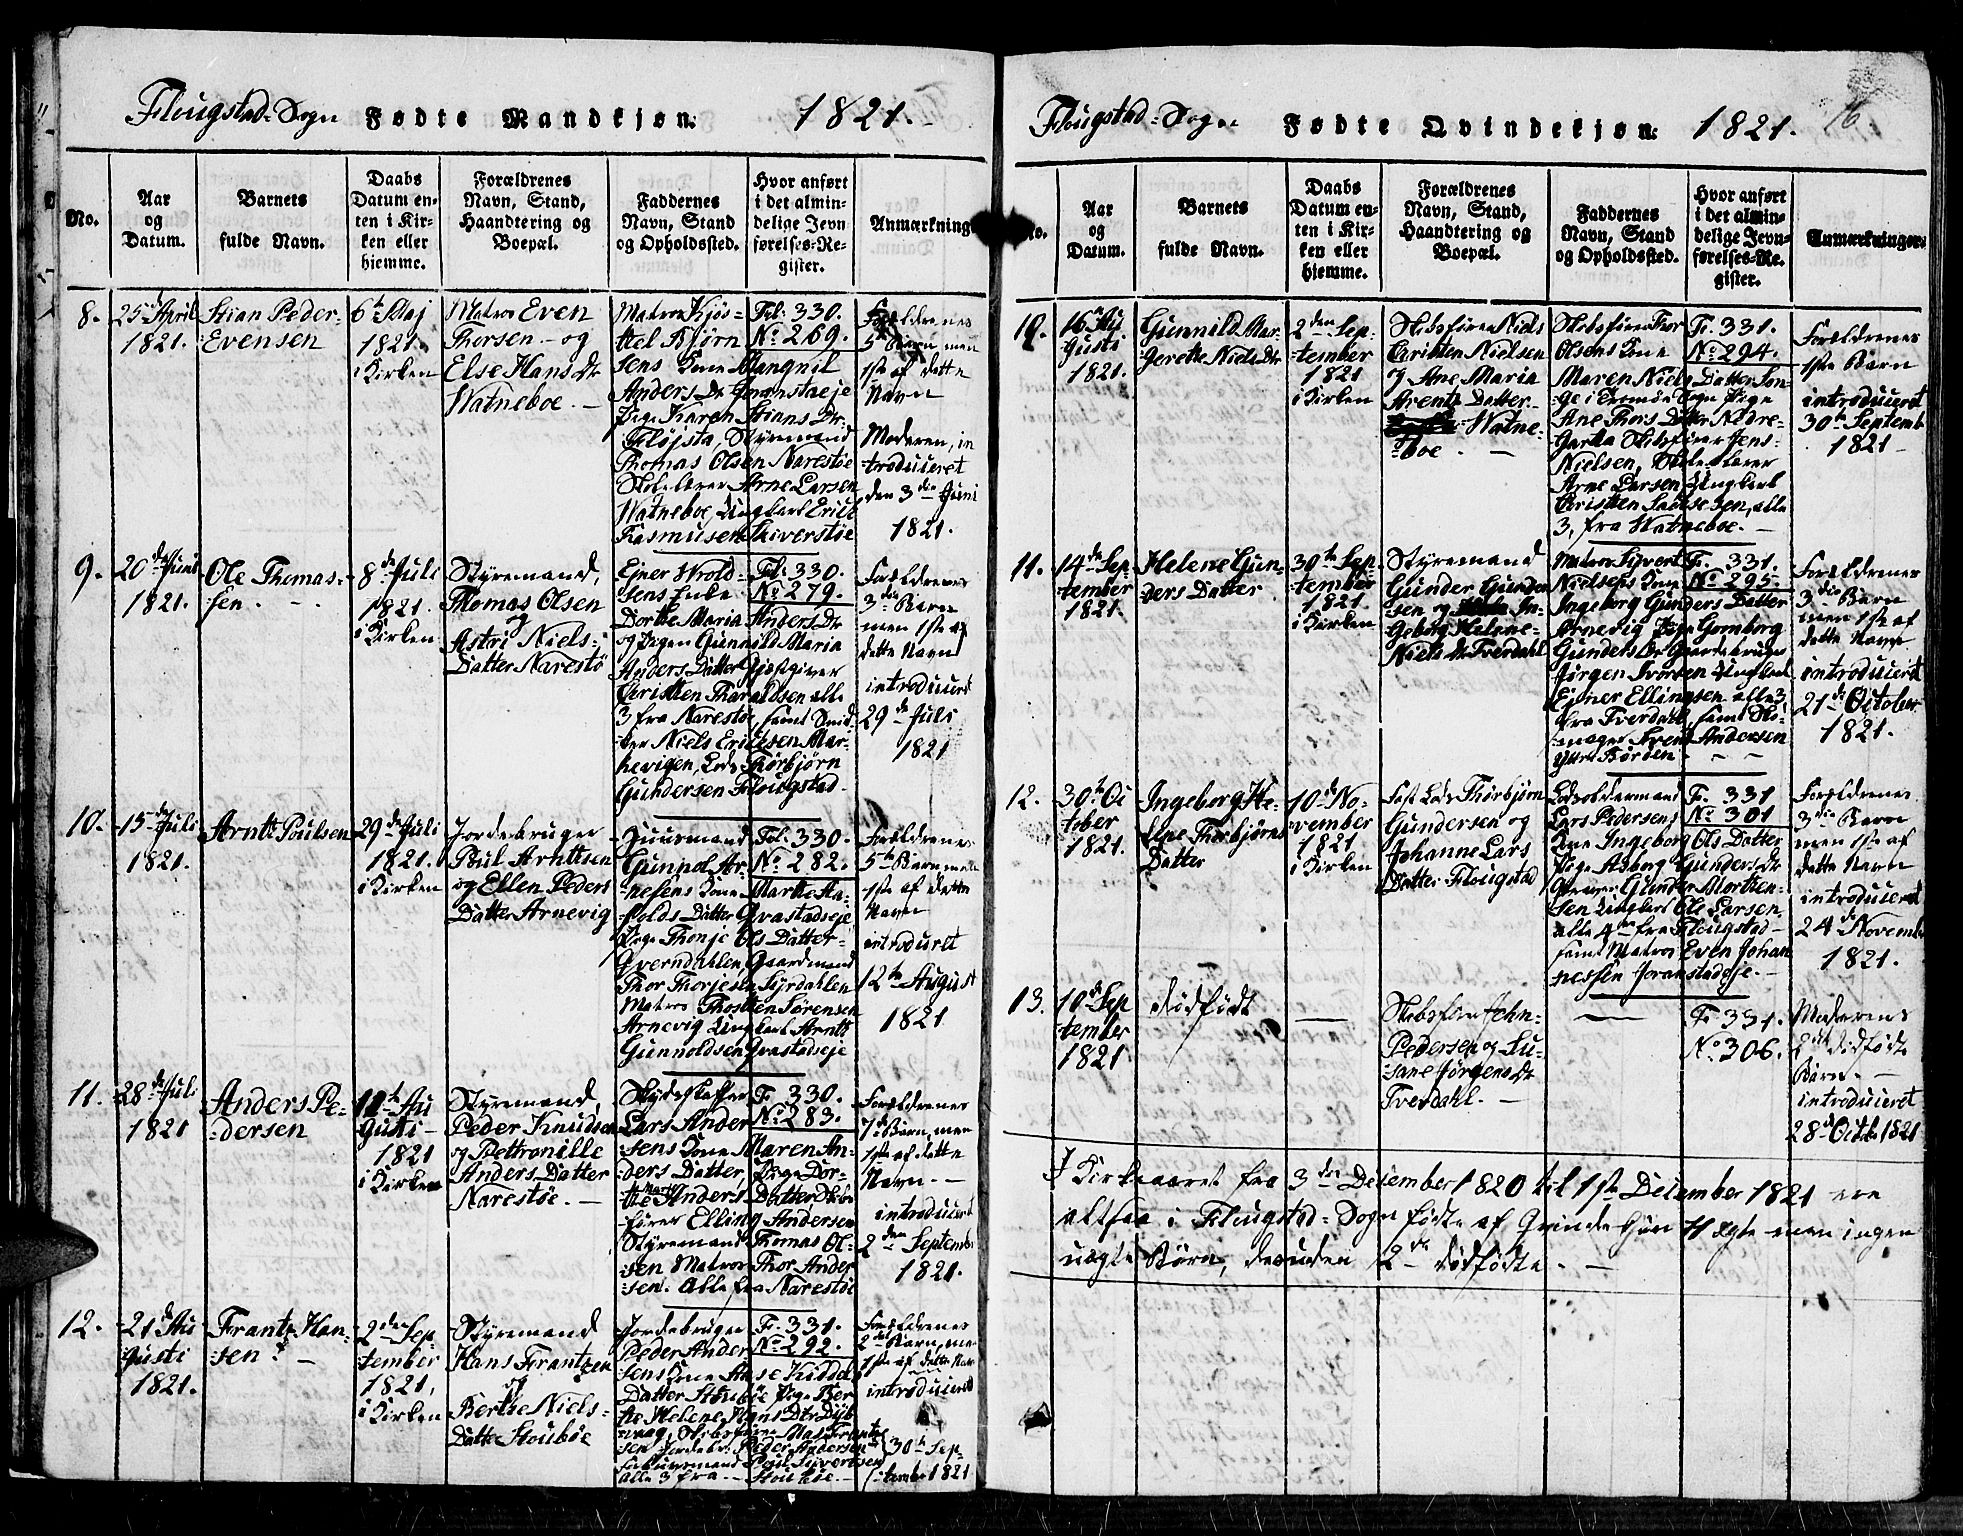 Flougstad-Sogn Fødte Mandkjøn: 1821.
No.
Aar
og
Datum.
Barnets
fulde Navn.
Daabs
Datum en-
ten i Kir-
ken eller
hjemme.
Forældrenes
Navn, Stand,
Haandtering og
Boepæl.
Faddernes
Navn, Stand
og Opholdssted.
Hvor anført
i det almin-
delige Jevn
førelses-Re-
gister.
Anmærkning
8.
25 April
1821.
Stian Peder-
Evensen
6te Maj
1821.
i Kirken
Matros Even
Thorsen - og
Else Hans Dr
Watneboe. -
Matros Kjøs-
ttel Bjørn
sens Kone Mangnil
Anders Dr
Pige Karen Stians Dr:
Fløjsta, Styremand
Thomas Olsen Narestøe
Skolelærer Arne Larsen
Watneboe, Ungkarl Erick
Rasmusen Siverstøe
Fol: 330.
No 269.
Forældrenes
5te Barn men
1ste af dette
Navn
Moderen in
troduceret
den 3die Juni
1821.
9.
20de Juni
1821.
Ole Thomas-
sen. - -
8de Juli
1821.
i Kirken
Styremand,
Thomas Olsen
og
Astri Niels-
Datter Narestö
Ejner Wrold-
sens Enke
Dorthe Maria Anders Dr
og Pigen Gunnild Maria
Anders Datter Gjestgiver
Christen Tharaldsen alle
3 fra Narestøe, samt Smid-
Niels Ericksen Mar-
kevigen, Lods Thorbjørn
Gundersen Flougstad.
Fol: 330.
No 279.
Forældrenes
3de Barn
men 1ste af
dette Navn
introduceret
29de Juli
1821
10.
15de Juli
1821.
Arnth Poulsen
29de Juli
1821.
i Kirken
Jordebruger
Poul Arntsen
og Ellen Peders
Datter Arnevig
Huusmand
Gunnol Ar-
nesens Kone Marthe Ha-
Datter Qvastadseje
Pige Thonje Ols Datter-
Qverndahlen Gaardmand
Thor Thorjesen Syrdahlen
Matros Thosten Sørensen
Arnevig Ungkarl Arnth
Gunnoldsen Qvastadseje
Fol: 330.
No 282.
Forældrenes
5te Barn men
1ste af dette
Navn
introduceret
12te August
1821
11.
28de Juli
1821
Anders Pe-
dersen
Au
gusti -
1821
i Kirken
Styremand
Peder Knudsen
og Pettronille
Anders Datter
Narestøe. -
Lars Ander
sens Kone Maren An-
ders Datter, Pige Dor-
the Marie Anders Datter Skibs
fører Elling Andersen
Styremand Thomas Ol-
sen Matros Thor Ander
sen. Alle fra Narestøe
F: 330.
No 283.
Forældrenes
7de Barn, men
1ste af dette
Navn. -
introduceret
2den Septemb
1821.
12.
21de Au
gusti
1821.
Frantz Han-
sen -
2den Sep
tember
1821,
i Kirken
Styremand
Hans Frantzen
og
Berthe Niels-
Datter Stoubøe
Jordebruger
Peder Ander
sens Kone
Datter Stoubøe Pige Ber
the Helene Hans Dtr Dyb
vaag, Skibsfører Mas Frantz
sen Jordebr: Peder Andersen
Poul Sivertsen
alle 3 fra - Stoubøe -
F: 331.
No 292.
Forældrenes
2det Barn, men
1ste af dette Nav
introduceret
30te Sep-
tember 1821
Flougstad-Sogn Fødte Qvindekjøn: 1821. 16
No.
Aar
og
Datum.
Barnets
fulde Navn.
Daabs
Datum en-
ten i Kir-
ken eller
hjemme.
Forældrenes
Navn, Stand,
Haandtering og
Boepæl.
Faddernes
Navn, Stand
og Opholdssted.
Hvor anført
i det almin-
delige Jevn-
førelses-Re-
gister.
Anmærkninger.
10.
16de Au
gusti
1821.
Gunnild Mar-
gerethe Niels Dtr
2den Sep-
tember
1821
i Kirken
Skibsfører Niels
Christen Nielsen
og Ane Maria
Arentz Datter
Watne-
boe. -
Skibsfører Thor
Olsens Kone
Maren Niels Datter Son-
ge i Tromöe Sogn Pige
Ane Thors Datter Nedre-
Gartta Skibsfører Jens-
Nielsen, Skolelærer
Arne Larsen Ungkarl
Christen
3, fra Watneboe. -
F: 331.
No 294.
Forældrenes
1ste Barn
introduceret
30te Septemb
1821
11.
14de Sep-
tember
1821.
Helene Gun-
ders Datter
30te Sep-
tember
1821.
i Kirken
Styremand
Gunder Gunder
sen og In-
geborg Helene-
Niels Dr Tverdahl
Matros Sivert
Nielsens Kone
Ingeborg Gunders Datter
Arnevig Pige Gomborg
Gunders Dr Gaardebruger
Jørgen Ivorsen Ungkarl
Ejener Ellingsen alle 3
fra Tverdahl, samt Sko-
mager Svend Andersen
F: 331.
No 295.
Forældrenes
3die Barn
men 1ste af
dette Navn
introduceret
21de October
1821.
12.
30te Oc
tober
1821.
Ingeborg He-
lene Thorbjørns
Datter
10de No-
vember
1821
i Kirken
Fast Lods Thorbjørn
Gundersen og
Johanne Lars
Datter Flougstad
Lodsoldermand
Lars Pedersens
Kone Ingeborg Ols Datter
Pige Asborg Gunders Dr
Gunder Morthen-
sen Ungkarl Ole Larsen
alle 4 fra Flougstad -
samt Matros Even Johan
nessen
F: 331
No 301
Forældrenes
3die Barn
men 1ste af
dette Navn
introduceret
24de Novemb
1821.
13.
10de Sep
tember
1821
dödfödt
-
Skibsfører John-
Pedersen og Su-
sane Jörgens Dr
Tverdahl. -
-
F: 331.
No 306.
Moderens
2det dödfödte
Barn. -
introduceret
28de Octb: 1821
I Kirkeaaret fra 3de December 1820 til 1ste December 1821 ere
altsaa i Flougstad-Sogn födte af Qvinde Kjön 11 ægte men ingen
uægte Børn, desuden 2de dödfödte. -